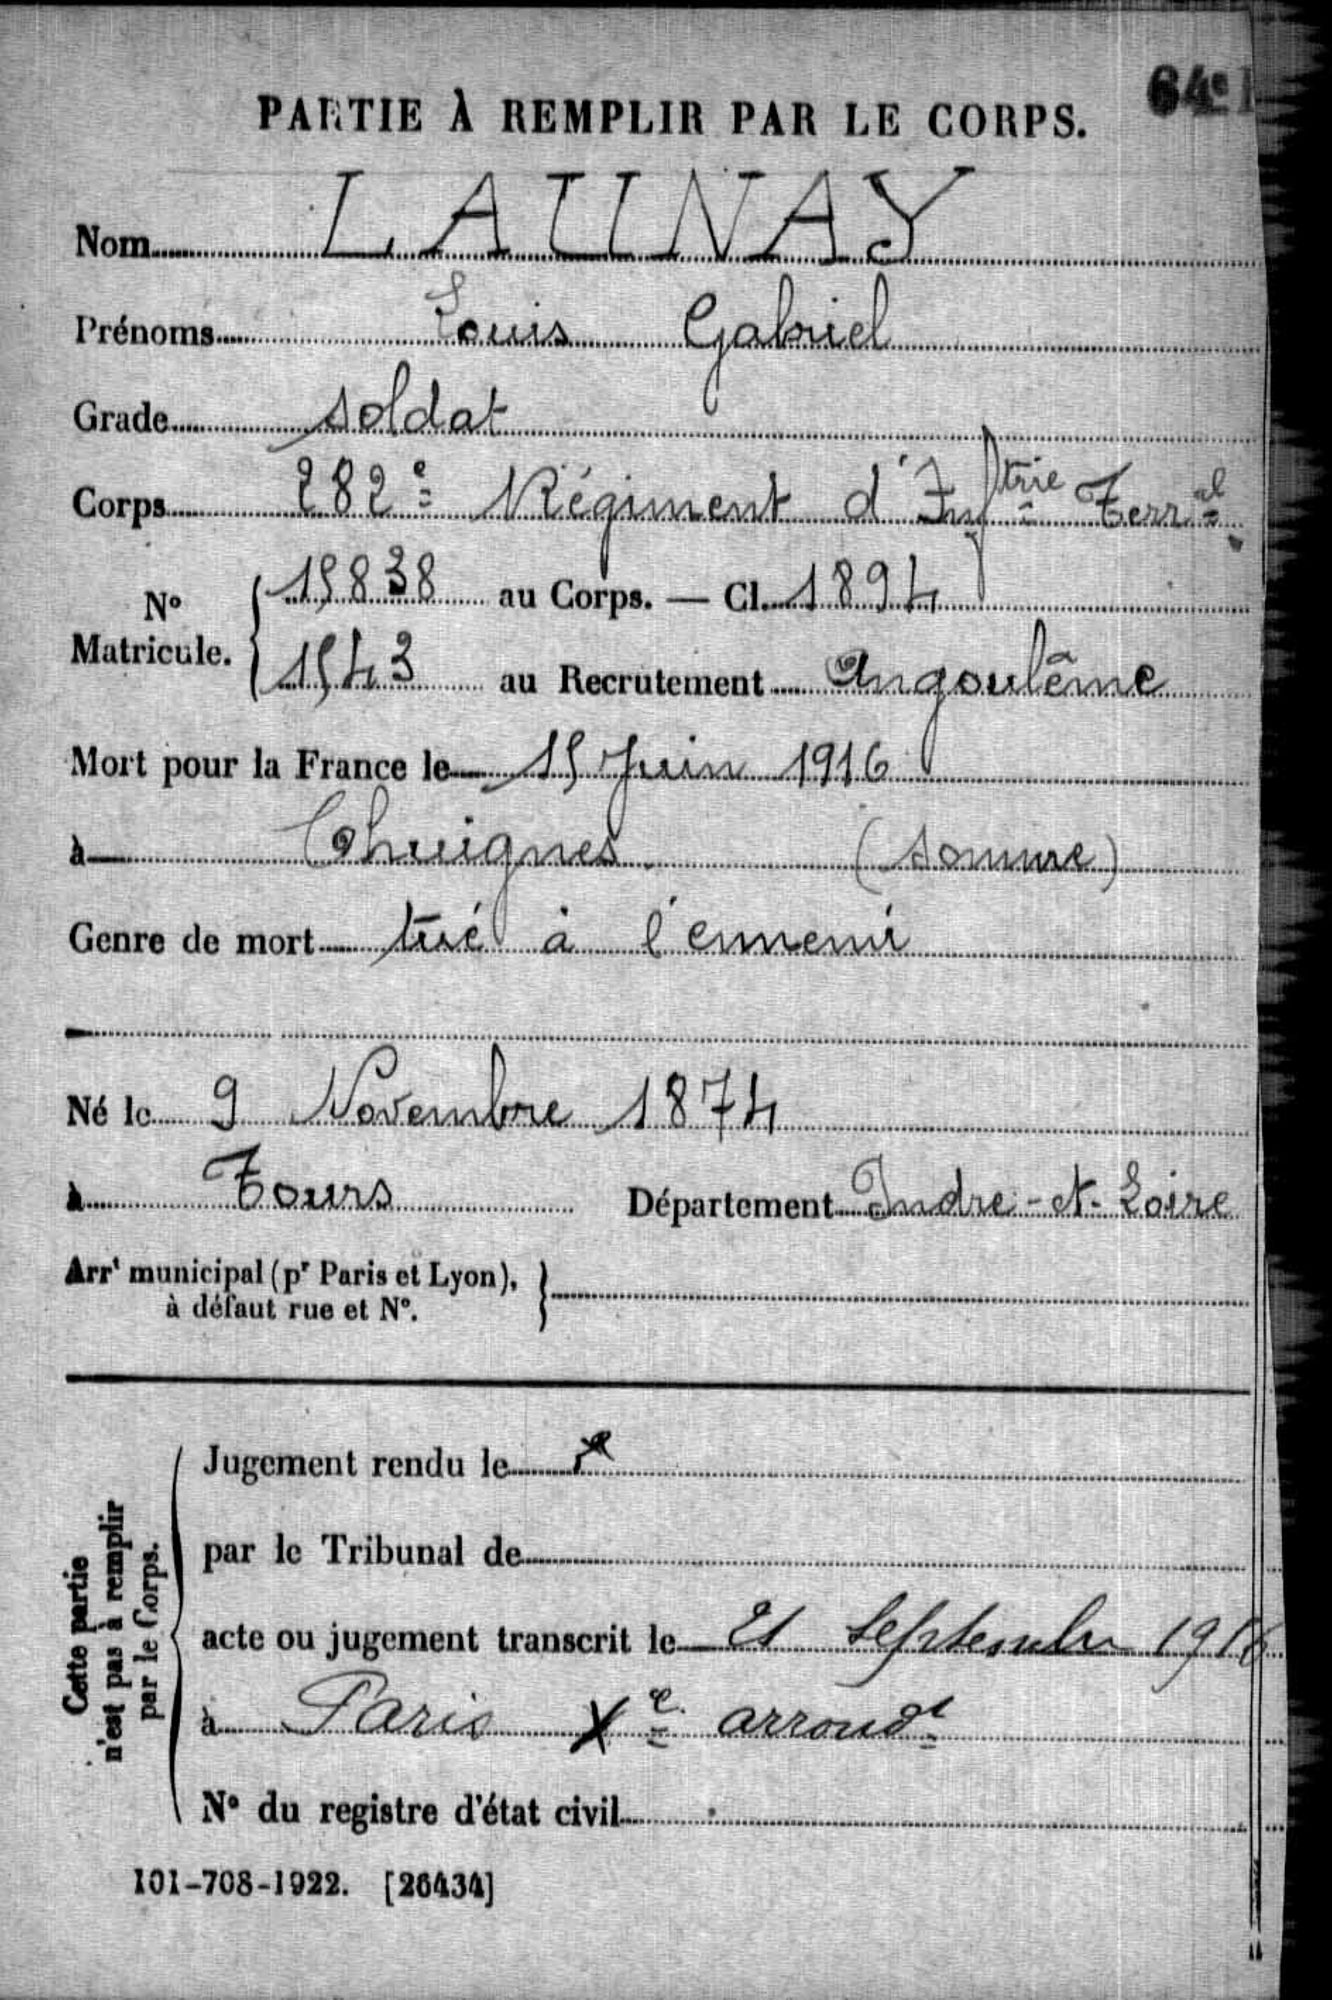 64e
PARTIE À REMPLIR PAR LE CORPS.
Nom LAUNAY
Prénoms Louis Gabriel
Grade soldat
Corps 282e Régiment d'Inftrie Terral
No Matricule. { 15838 au Corps. — Cl. 1894
1543 au Recrutement Angoulême
Mort pour la France le 15 Juin 1916
à Chuignes (Somme)
Genre de mort tué à l'ennemi
Né le 9 Novembre 1874
à Tours Département Indre-et-Loire
Arrt municipal (pr Paris et Lyon), à défaut rue et No. }
Cette partie n'est pas à remplir par le Corps.
Jugement rendu le
par le Tribunal de
acte ou jugement transcrit le 21 Septembre 1916
à Paris Xe arrondt
No du registre d'état civil
101-708-1922. [26434]